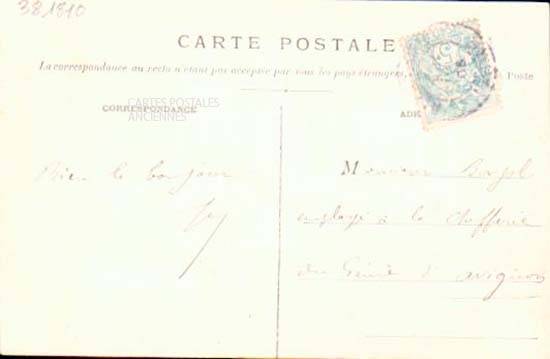 381810
CARTE POSTALE
La correspondance au recto n'étant pas acceptée par tous les pays étrangers, Poste
CORRESPONDANCE
CARTES POSTALES
ANCIENNES
Bien le bonjour
Monsieur
employé à la
du Génie d'Avignon